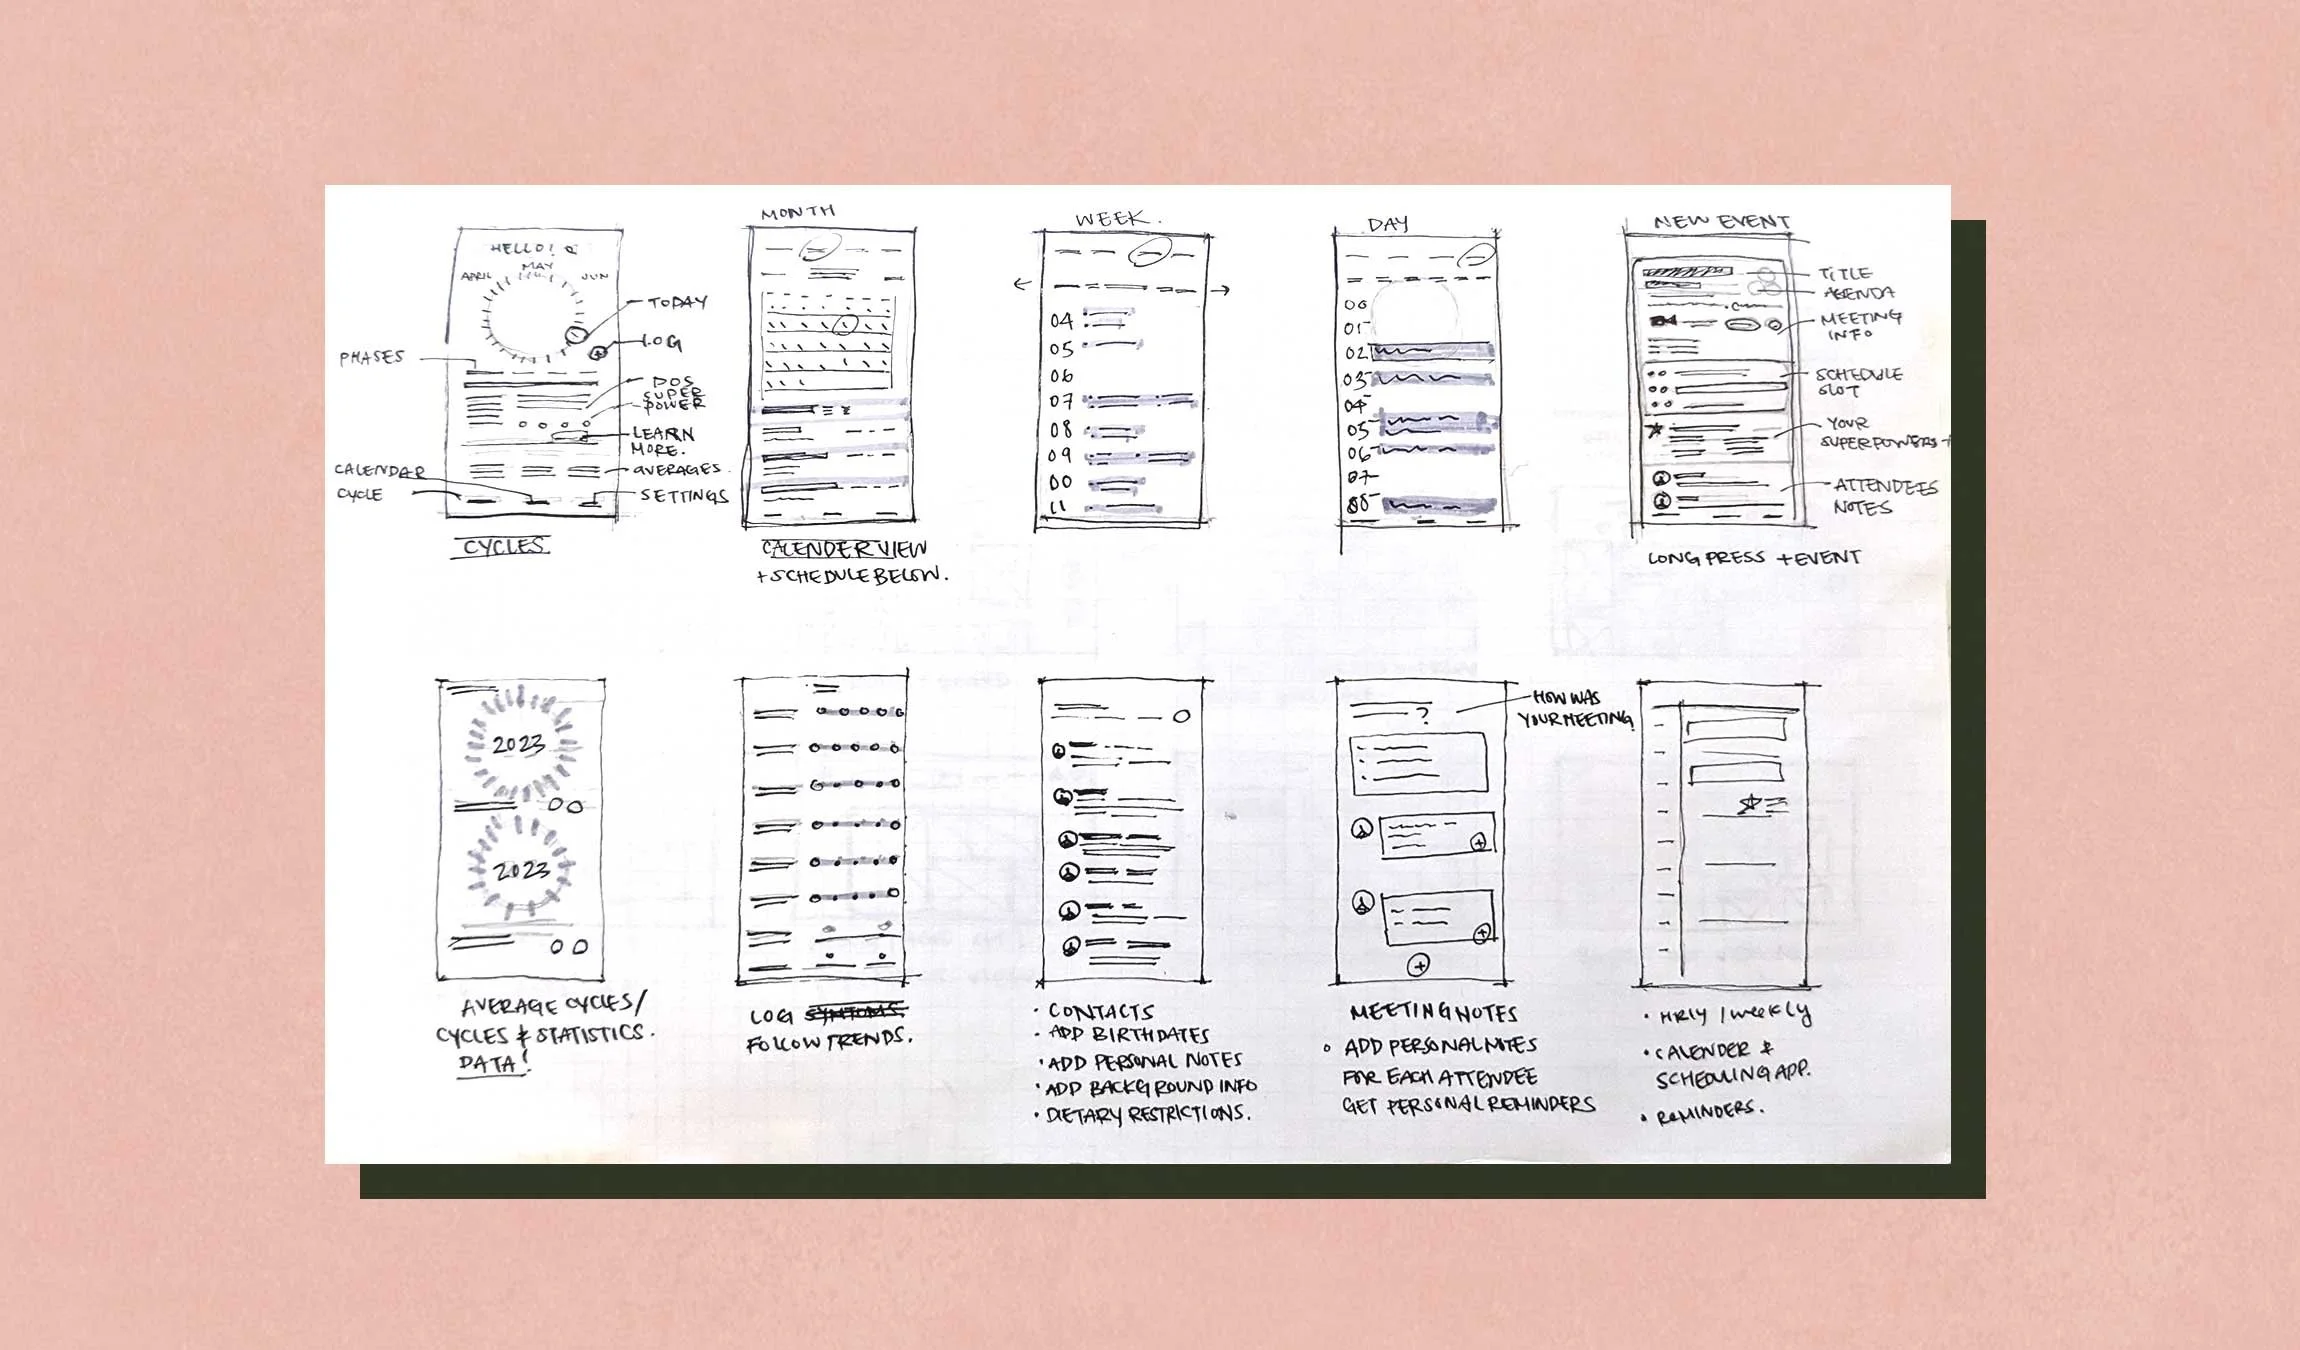 HELLO!
APRIL MAY JUN
TODAY
LOG
PHASES
DOS
SUPER
POWER
LEARN
MORE.
CALENDAR
AVERAGES.
CYCLE
SETTINGS
CYCLES
MONTH
CALENDER VIEW
+ SCHEDULE BELOW.
WEEK.
04
05
06
07
08
09
00
11
DAY
00
01
02
03
04
05
06
07
08
NEW EVENT
TITLE
AGENDA
MEETING
INFO
SCHEDULE
SLOT
YOUR
SUPERPOWERS +
ATTENDEES
NOTES
LONG PRESS + EVENT
2023
2023
AVERAGE CYCLES/
CYCLES & STATISTICS.
DATA!
LOG SYMTOMS.
FOLLOW TRENDS.
• CONTACTS
• ADD BIRTHDATES
• ADD PERSONAL NOTES
• ADD BACKGROUND INFO
• DIETARY RESTRICTIONS.
?
HOW WAS
YOUR MEETING
MEETING NOTES
ADD PERSONAL NOTES
FOR EACH ATTENDEE
GET PERSONAL REMINDERS
• HRLY / WEEKLY
• CALENDER &
SCHEDULING APP.
• REMINDERS.